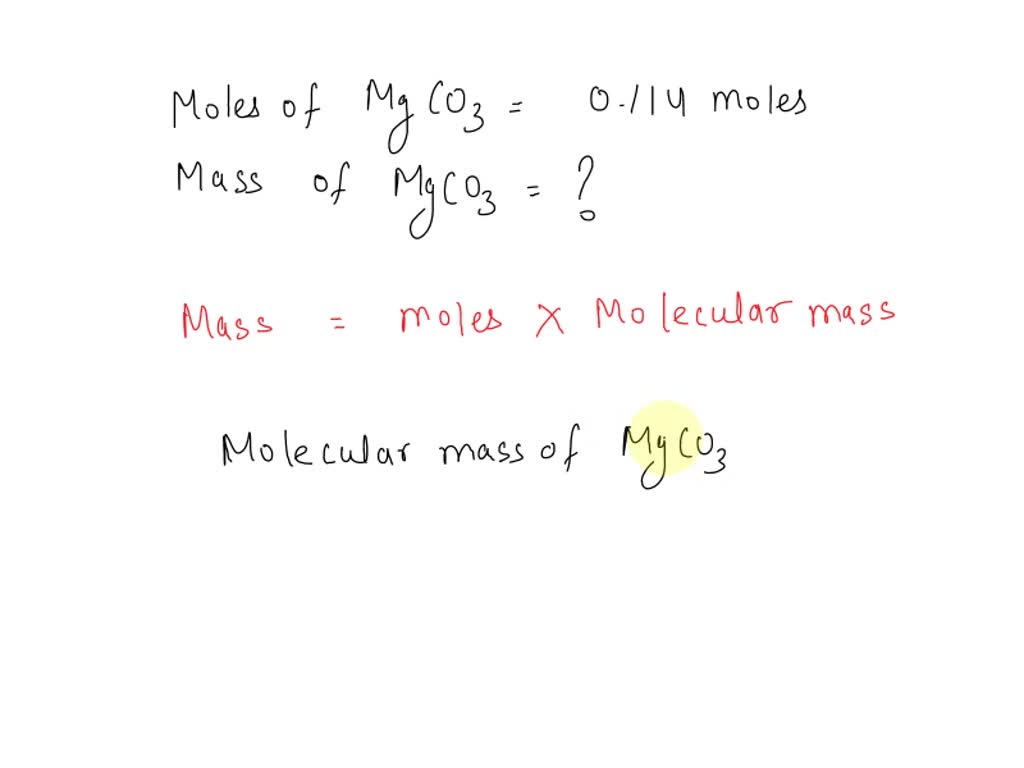 Moles of MgCO3 = 0.114 moles
Mass of MgCO3 = ?
Mass = moles × Molecular mass
Molecular mass of MgCO3